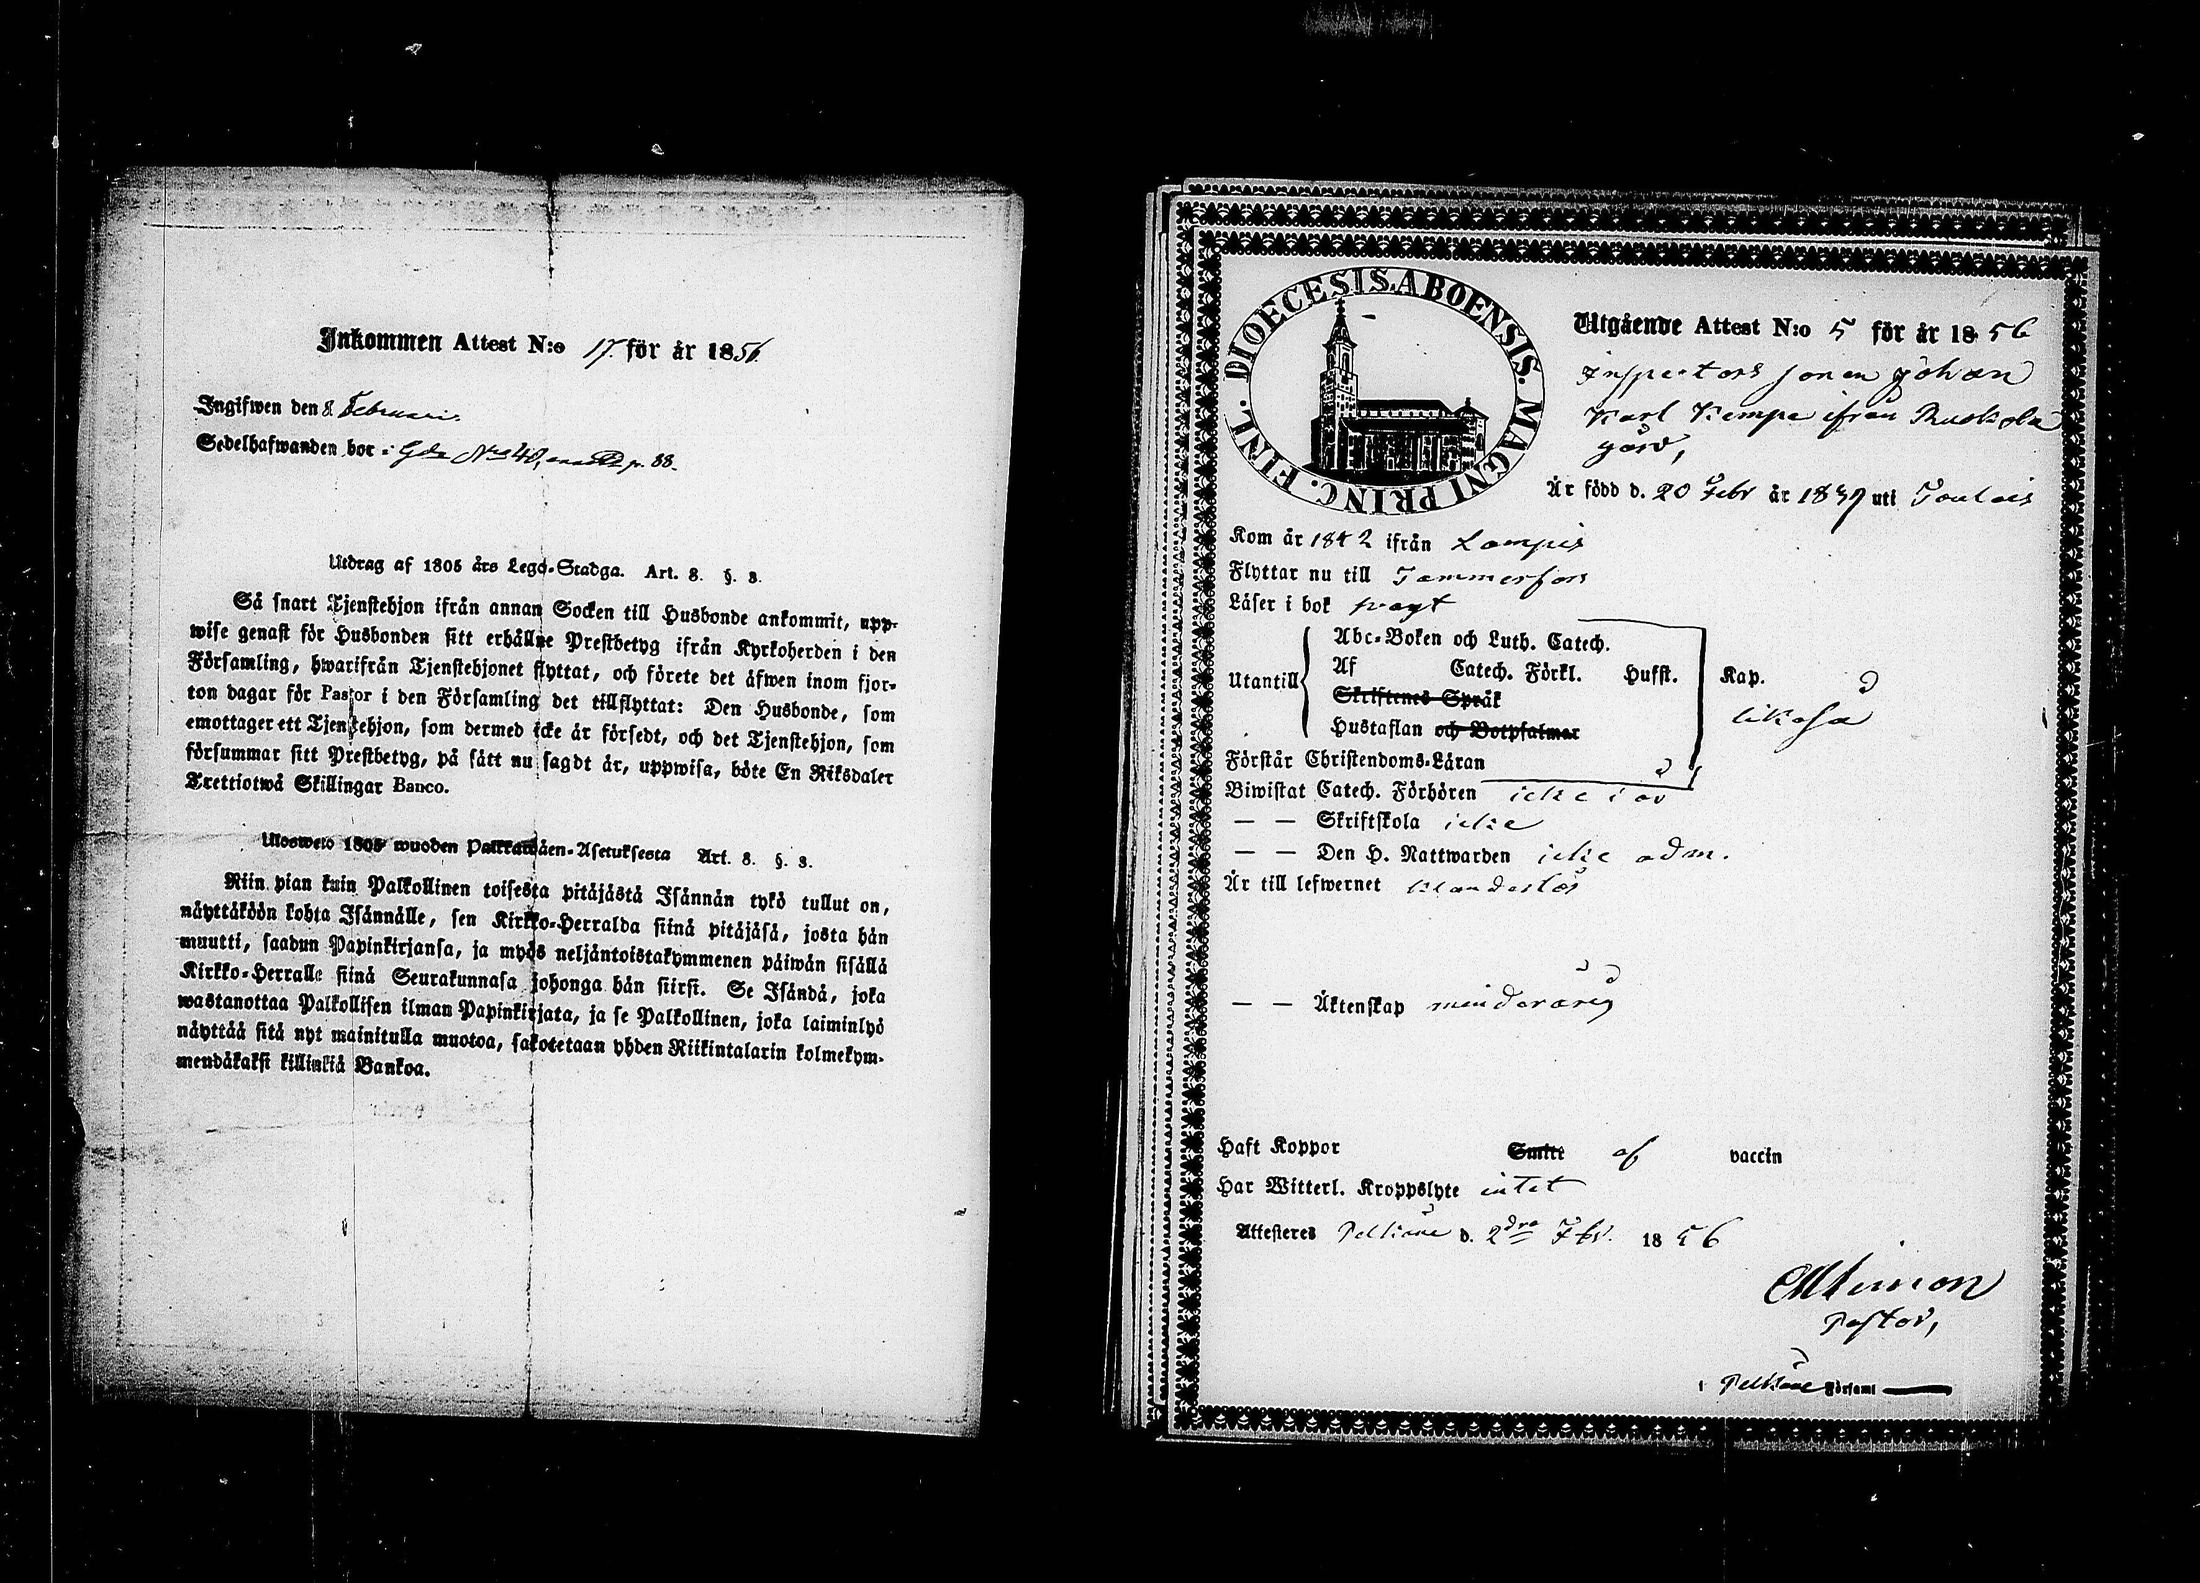 Inkommen Attest N:o 17 för år 1856.
Ingifwen den 8 Februari.
Sedelhafwanden bor i Gdn N:o 48, p. 88.
Utdrag af 1805 års Lego-Stadga. Art. 8. §. 3.
Så snart Tjenstehjon ifrån annan Socken till Husbonde ankommit, upp-
wise genast för Husbonden sitt erhållne Prestbetyg ifrån Kyrkoherden i den
Församling, hwarifrån Tjenstehjonet flyttat, och förete det äfwen inom fjor-
ton dagar för Pastor i den Församling det tillflyttat: Den Husbonde, som
emottager ett Tjenstehjon, som dermed icke är försedt, och det Tjenstehjon, som
försummar sitt Prestbetyg, på sätt nu sagdt är, uppwisa, böte En Riksdaler
Trettiotwå Skillingar Banco.
Ulosweto 1805 wuoden Palkkawäen-Asetuksesta Art. 8. §. 3.
Niin pian kuin Palkollinen toisesta pitäjästä Isännän tykö tullut on,
näyttäköön kohta Isännälle, sen Kirkko-Herralda siinä pitäjäsä, josta hän
muutti, saadun Papinkirjansa, ja myös neljäntoistakymmenen päiwän sisällä
Kirkko-Herralle siinä Seurakunnasa johonga hän siirsi. Se Isändä, joka
wastanottaa Palkollisen ilman Papinkirjata, ja se Palkollinen, joka laiminlyö
näyttää sitä nyt mainitulla muotoa, sakotetaan yhden Riikintalarin kolmekym-
mendäkaksi killinkiä Bankoa.
DIOECESIS. ABOENSIS. MAGNI PRINC. FINL.
Utgående Attest N:o 5 för år 1856
Inspectors sonen Johan
Karl Kempe ifrån Ruokola
gård,
Är född d. 20 Febr år 1839 uti Toulois
Kom år 1842 ifrån Lampis
Flyttar nu till Tammerfors
Läser i bok
Utantill
Abc-Boken och Luth. Catech.
Af Catech. Förkl. Husst. Kap.
Skriftenes Språk
Hustaflan och Botpsalmer
likaså
Förstår Christendoms-Läran
Biwistat Catech. Förhören icke i år
— — Skriftskola icke
— — Den H. Nattwarden icke adm.
Är till lefwernet klanderlös
— — Äktenskap minderårig
Haft Koppor Smitt af vaccin
Har Witterl. Kroppslyte intet
Attesteras Pelkäne d. 2dra Febr. 1856
Pastor,
i Pelkäne Församl